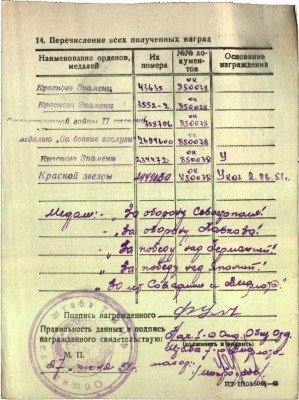 14. Перечисление всех полученных наград
Наименование орденов, медалей | Их номера | №№ документов | Основание награждения
Красного Знамени | 43635 | ОК 850028
Красного Знамени | 3552-2 | ОК 850028
Отечественной войны II степени | 758706 | ОК 850028
медалью „За боевые заслуги“ | 2697600 | ОК 850028
Красного Знамени | 234472 | ОК 850028 | У
Красной звезды | ОК 850028 | Указ 2.06.51г.
Медали: - „За оборону Севастополя!
- „За оборону Кавказа!
- „За победу над Германией!
„За победу над Японией!
Подпись награжденного
Правильность данных и подпись
награжденного свидетельствую:
(должность и подпись)
М. П.
27 июня 51г. майор: